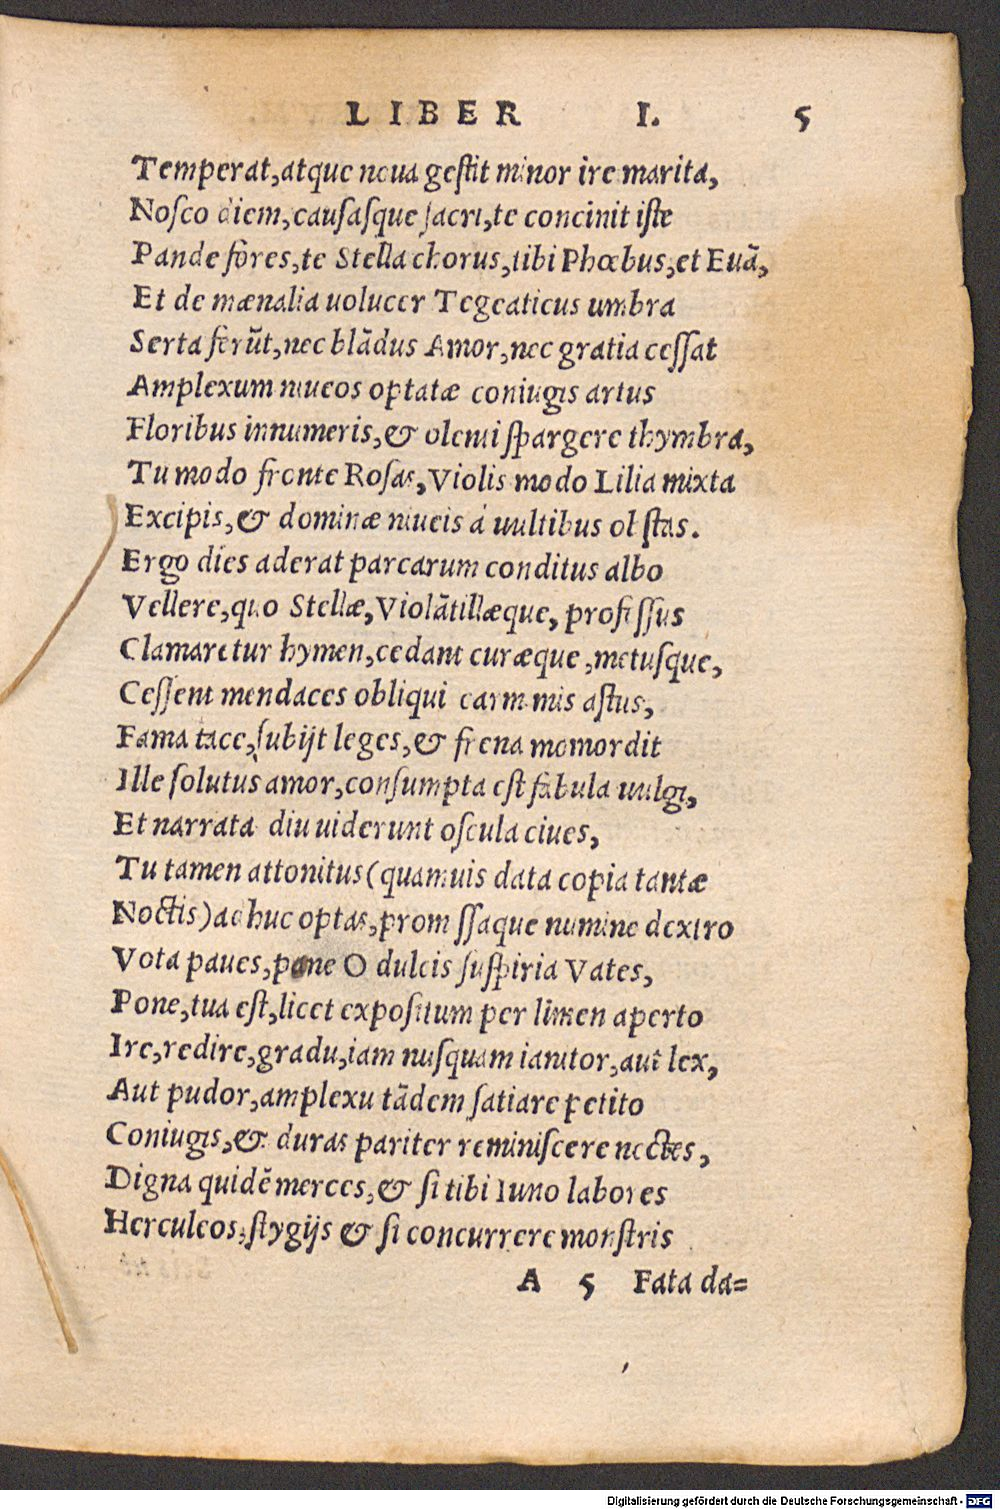 LIBER I. 5
Temperat, atque noua gestit minor ire marita,
Nosco diem, causasque sacri, te concinit iste
Pande fores, te Stella chorus, tibi Phœbus, et Euã,
Et de mænalia uolucer Tegeaticus umbra
Serta ferũt, nec blãdus Amor, nec gratia cessat
Amplexum niueos optatæ coniugis artus
Floribus innumeris, & olenti spargere thymbra,
Tu modo fronte Rosas, Violis modo Lilia mixta
Excipis, & dominæ niueis á uultibus obstas.
Ergo dies aderat parcarum conditus albo
Vellere, quo Stellæ, Violãtillæque, professus
Clamaretur hymen, cedant curæque, metusque,
Cessent mendaces obliqui carminis astus,
Fama tace, subijt leges, & frena momordit
Ille solutus amor, consumpta est fabula uulgi,
Et narrata diu uiderunt oscula ciues,
Tu tamen attonitus (quamuis data copia tantæ
Noctis) adhuc optas, promissaque numine dextro
Vota paues, pone O dulcis suspiria Vates,
Pone, tua est, licet expositum per limen aperto
Ire, redire, gradu, iam nusquam ianitor, aut lex,
Aut pudor, amplexu tãdem satiare petito
Coniugis, & duras pariter reminiscere noctes,
Digna quidẽ merces, & si tibi Iuno labores
Herculeos, stygijs & si concurrere monstris
A 5 Fata da=
Digitalisierung gefördert durch die Deutsche Forschungsgemeinschaft - DFG